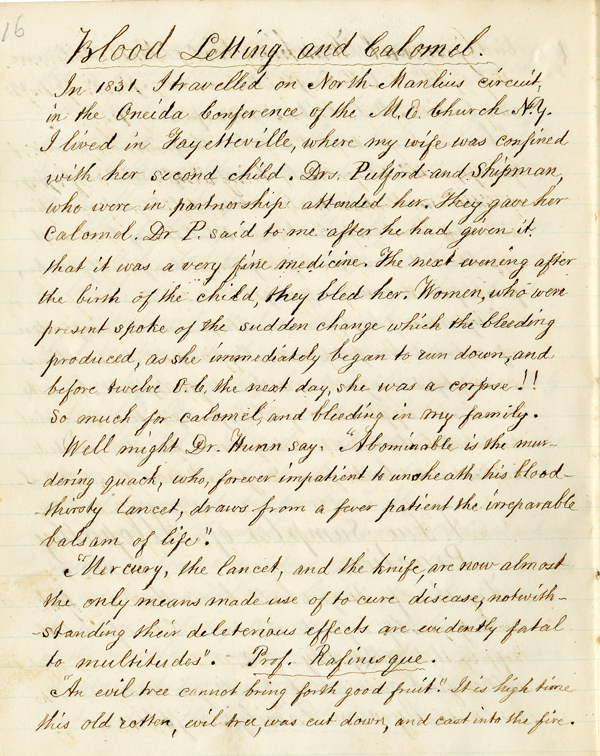 16
Blood Letting and Calomel.
In 1831. I travelled on North Manlius circuit,
in the Oneida Conference of the M. E. Church N.Y.
I lived in Fayetteville, where my wife was confined
with her second child. Drs. Pulford and Shipman,
who were in partnership attended her. They gave her
Calomel. Dr P. said to me after he had given it
that it was a very fine medicine. The next evening after
the birth of the child, they bled her. Women, who were
present spoke of the sudden change which the bleeding
produced, as she immediately began to run down, and
before twelve O. C. the next day, she was a corpse!!
So much for calomel, and bleeding in my family.
Well might Dr. Hunn say. "Abominable is the mur-
dering quack, who, forever impatient to unsheath his blood-
-thirsty lancet, draws from a fever patient the irreparable
balsam of life".
"Mercury, the lancet, and the knife, are now almost
the only means made use of to cure disease, notwith-
-standing their deleterious effects are evidently fatal
to multitudes". Prof. Rafinesque.
"An evil tree cannot bring forth good fruit". It is high time
this old rotten, evil tree, was cut down, and cast into the fire.